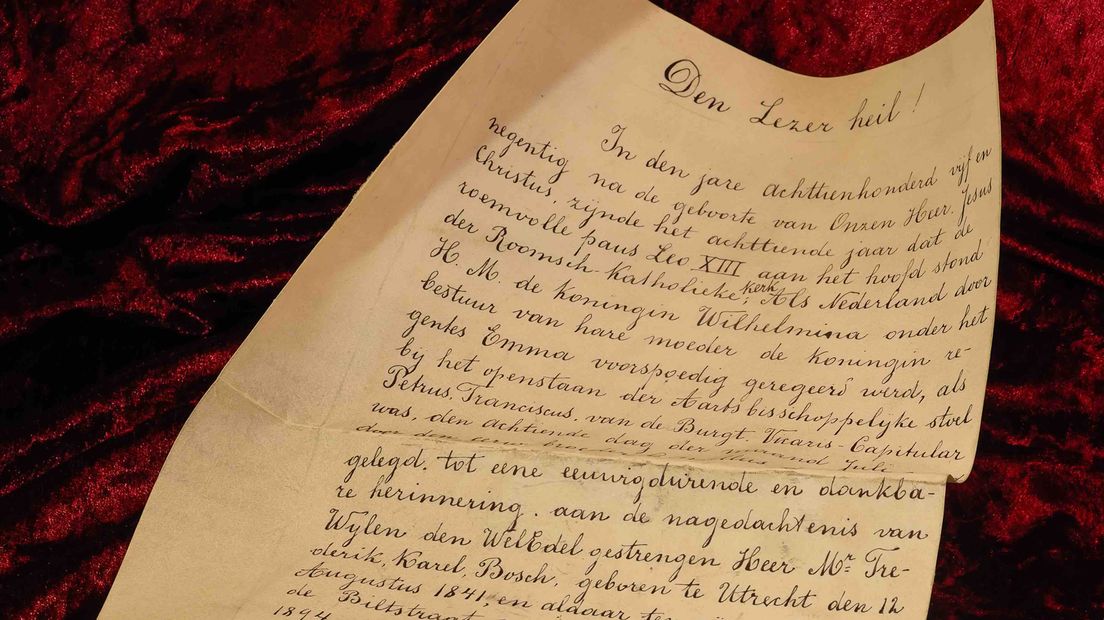 Den Lezer heil!
In den jare achttienhonderd vijf en
negentig na de geboorte van Onzen Heer Jesus
Christus, zijnde het achttiende jaar dat de
roemvolle paus Leo XIII aan het hoofd stond
der Roomsch-Katholieke kerk, Als Nederland door
H. M. de Koningin Wilhelmina onder het
bestuur van hare moeder de Koningin re-
gentes Emma voorspoedig geregeerd wird, als
bij het openstaan der Aartsbisschoppelijke stoel
Petrus, Franciscus, van de Burgt, Vicaris-Capitular
was, den achttiende dag der maand Juli
door den eerw
gelegd. tot eene eeuwigdurende en dankba-
re herinnering. aan de nagedachtenis van
Wylen den WelEdel gestrengen Heer Mr. Fre-
derik, Karel, Bosch, geboren te Utrecht den 12
Augustus 1841, en aldaar
de Biltstraat
1894